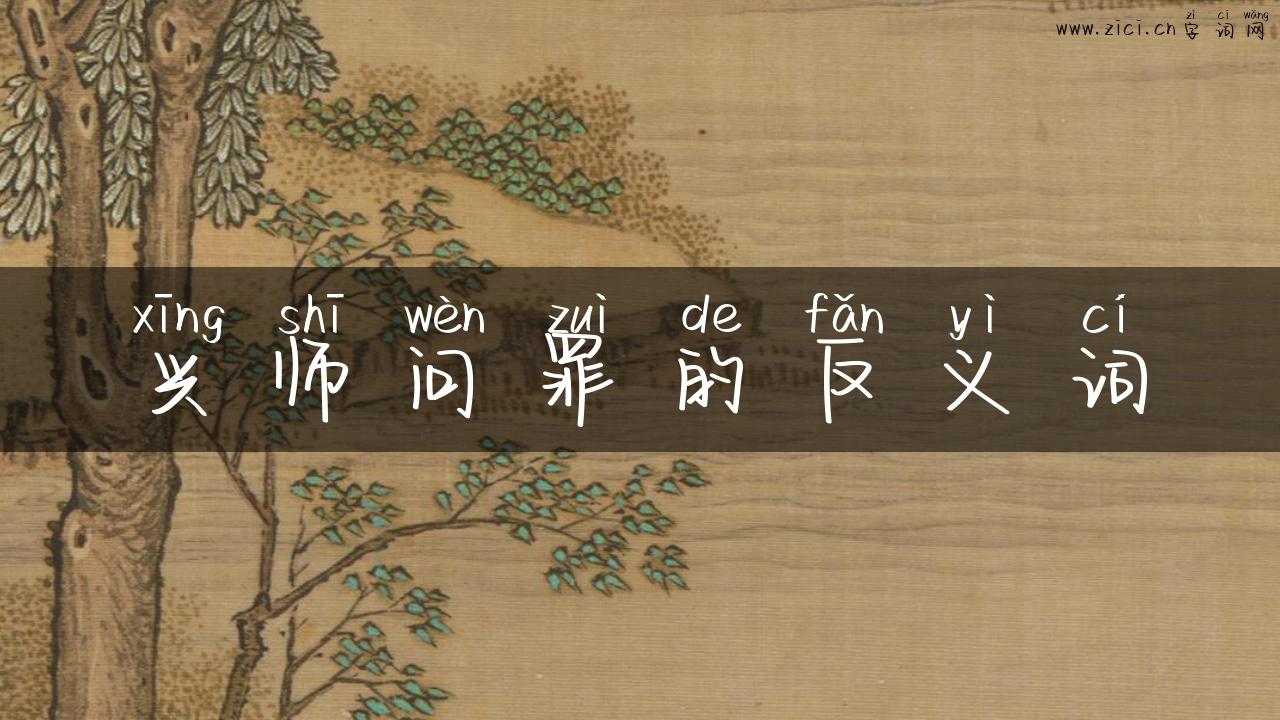 zì cí wǎng
www.zici.cn 字词网
xīng shī wèn zuì de fǎn yì cí
兴师问罪的反义词